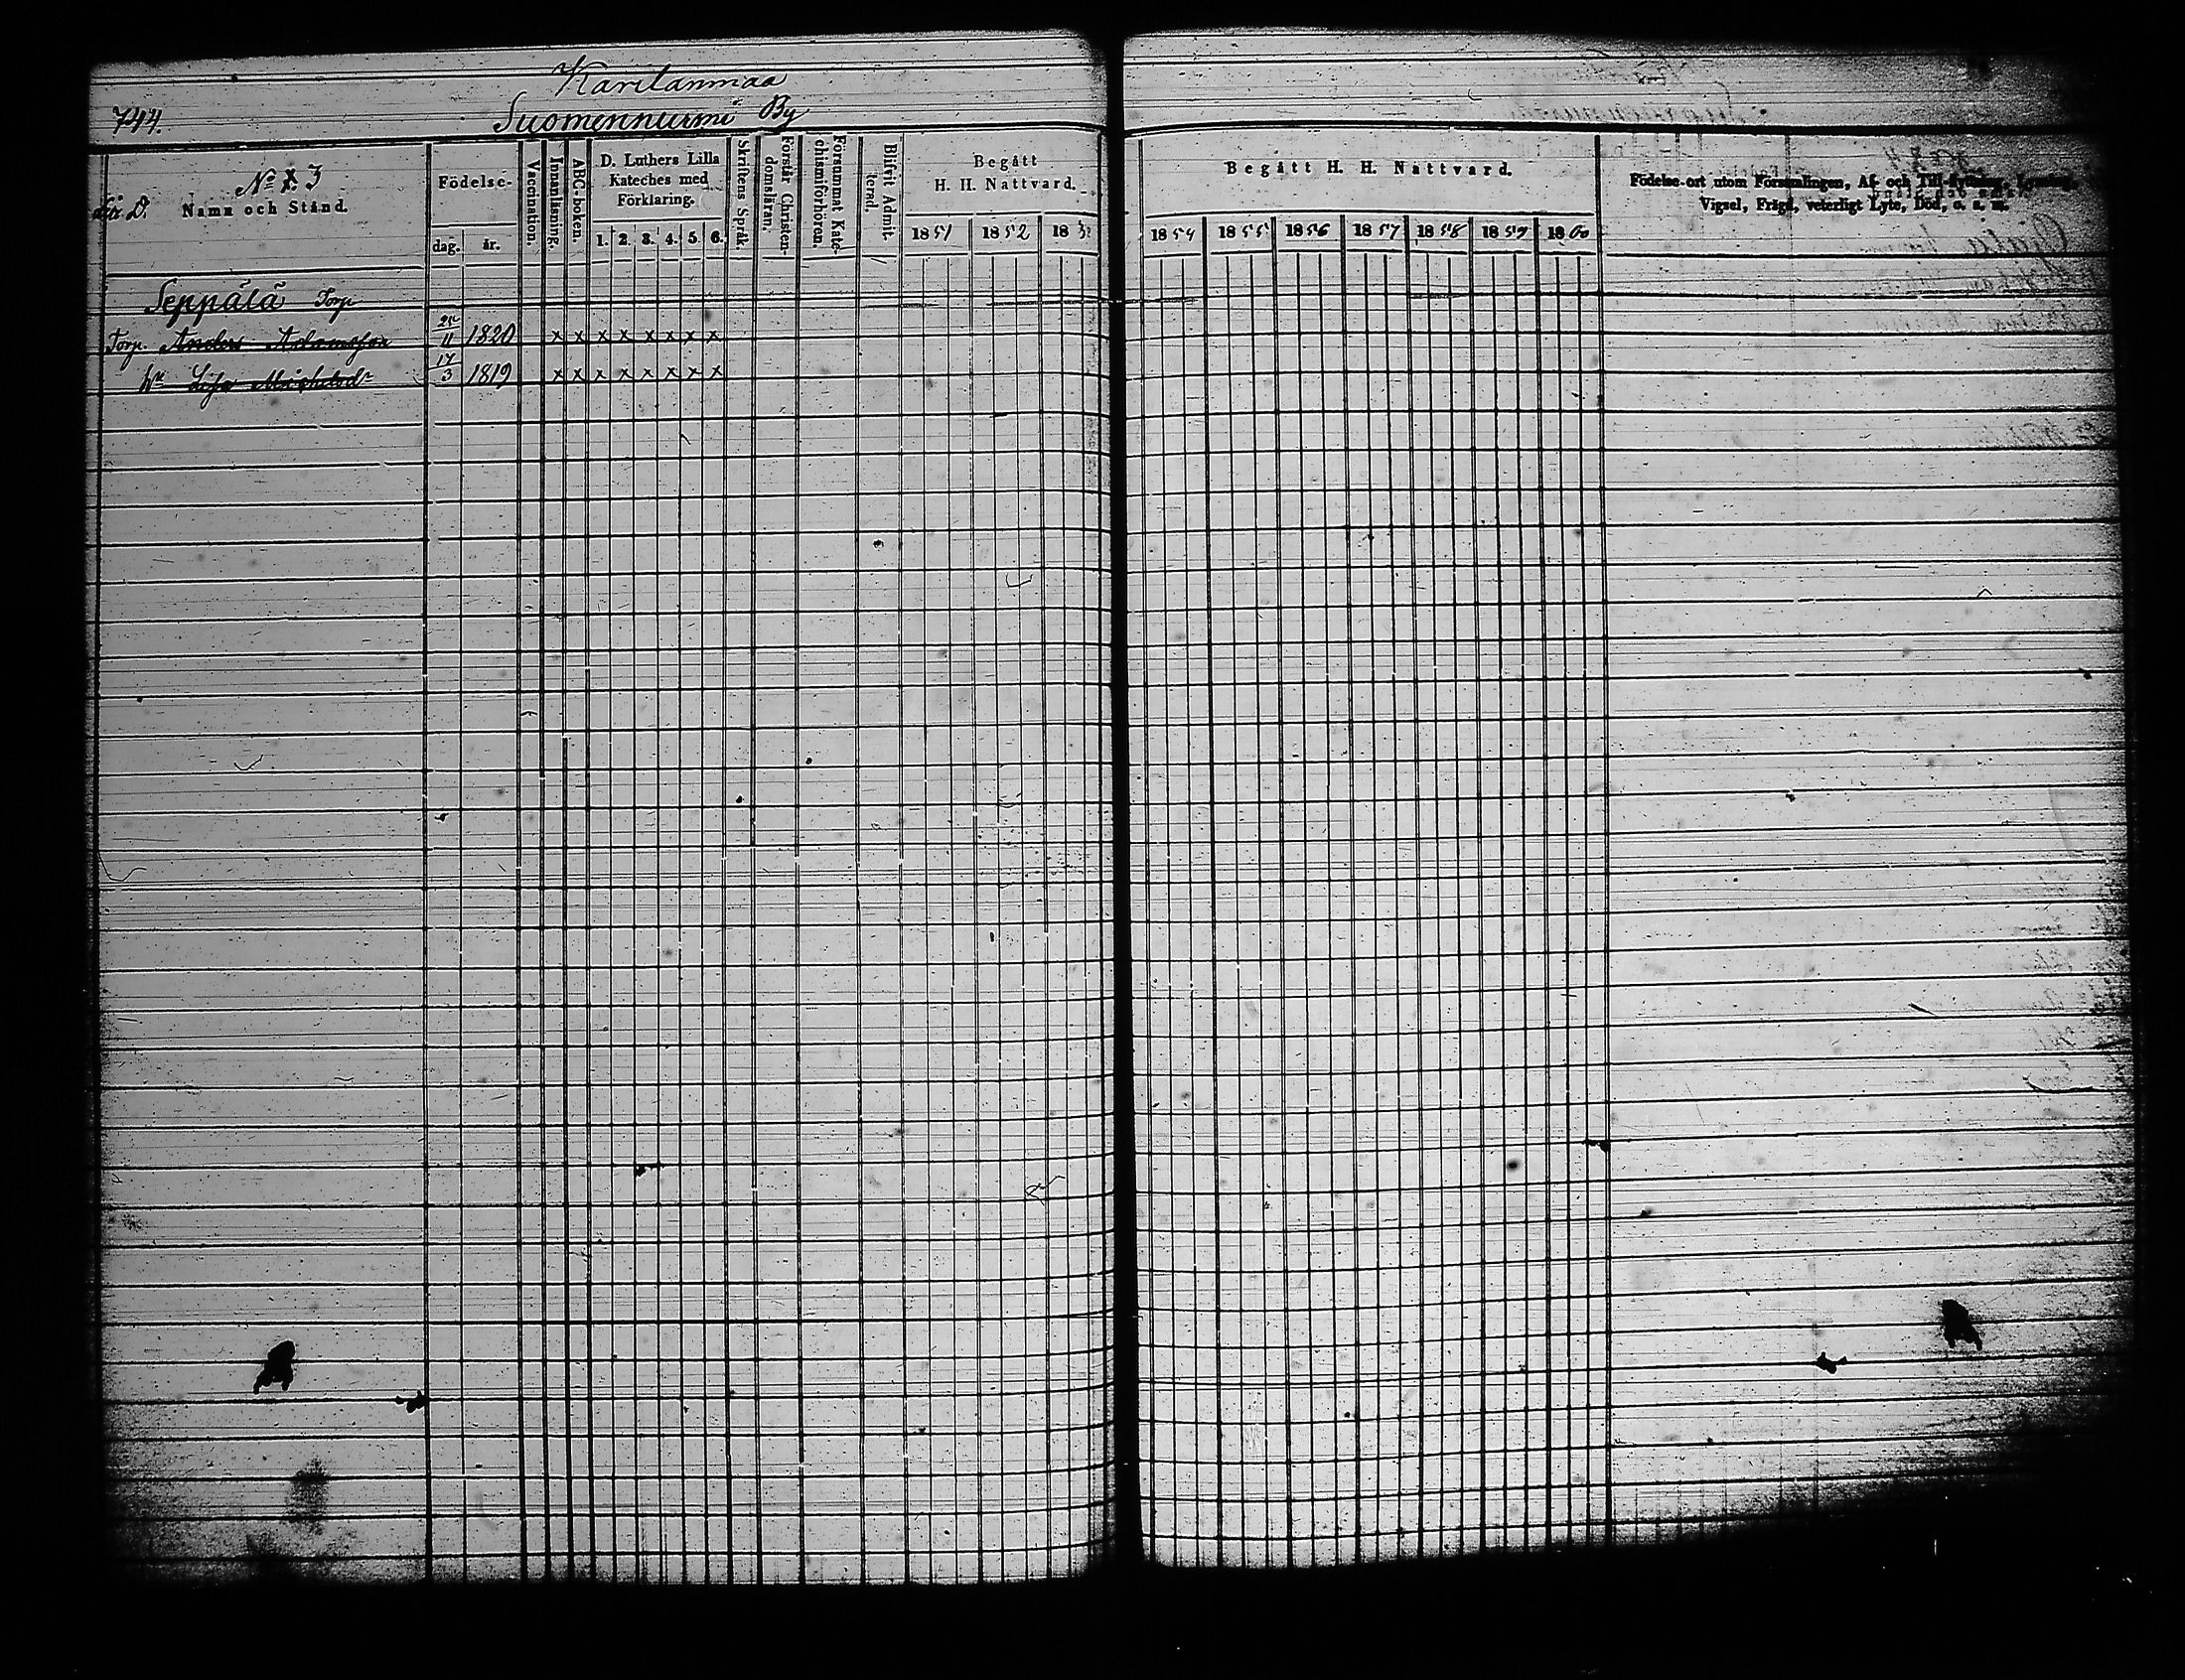 Karilanmaa
744. Suomennurmi By
No 3
Lit D. Namn och Stånd.
Födelse-
dag. år.
Vaccination.
Innanläsning.
ABC-boken.
D. Luthers Lilla
Kateches med
Förklaring.
1. 2. 3. 4. 5. 6.
Skriftens Språk.
Förstår Christen-
domsläran.
Försummat Kate-
chismiförhören.
Blifvit Admit-
terad.
Begått
H. H. Nattvard.
1851 1852 183
Begått H. H. Nattvard.
1854 1855 1856 1857 1858 1859 1860
Födelse-ort utom Församlingen, Af- och Till-
Vigsel, Frägd, veterligt Lyte, Död, o. s. m.
Seppälä Torp
Torp. Anders Adamsson 11 1820 x x x x x x x x
Hu Lisa 17 3 1819 x x x x x x x x